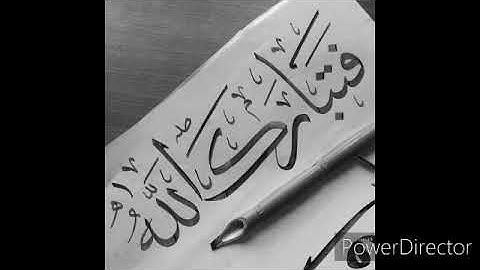 فتبارك الله
PowerDirector